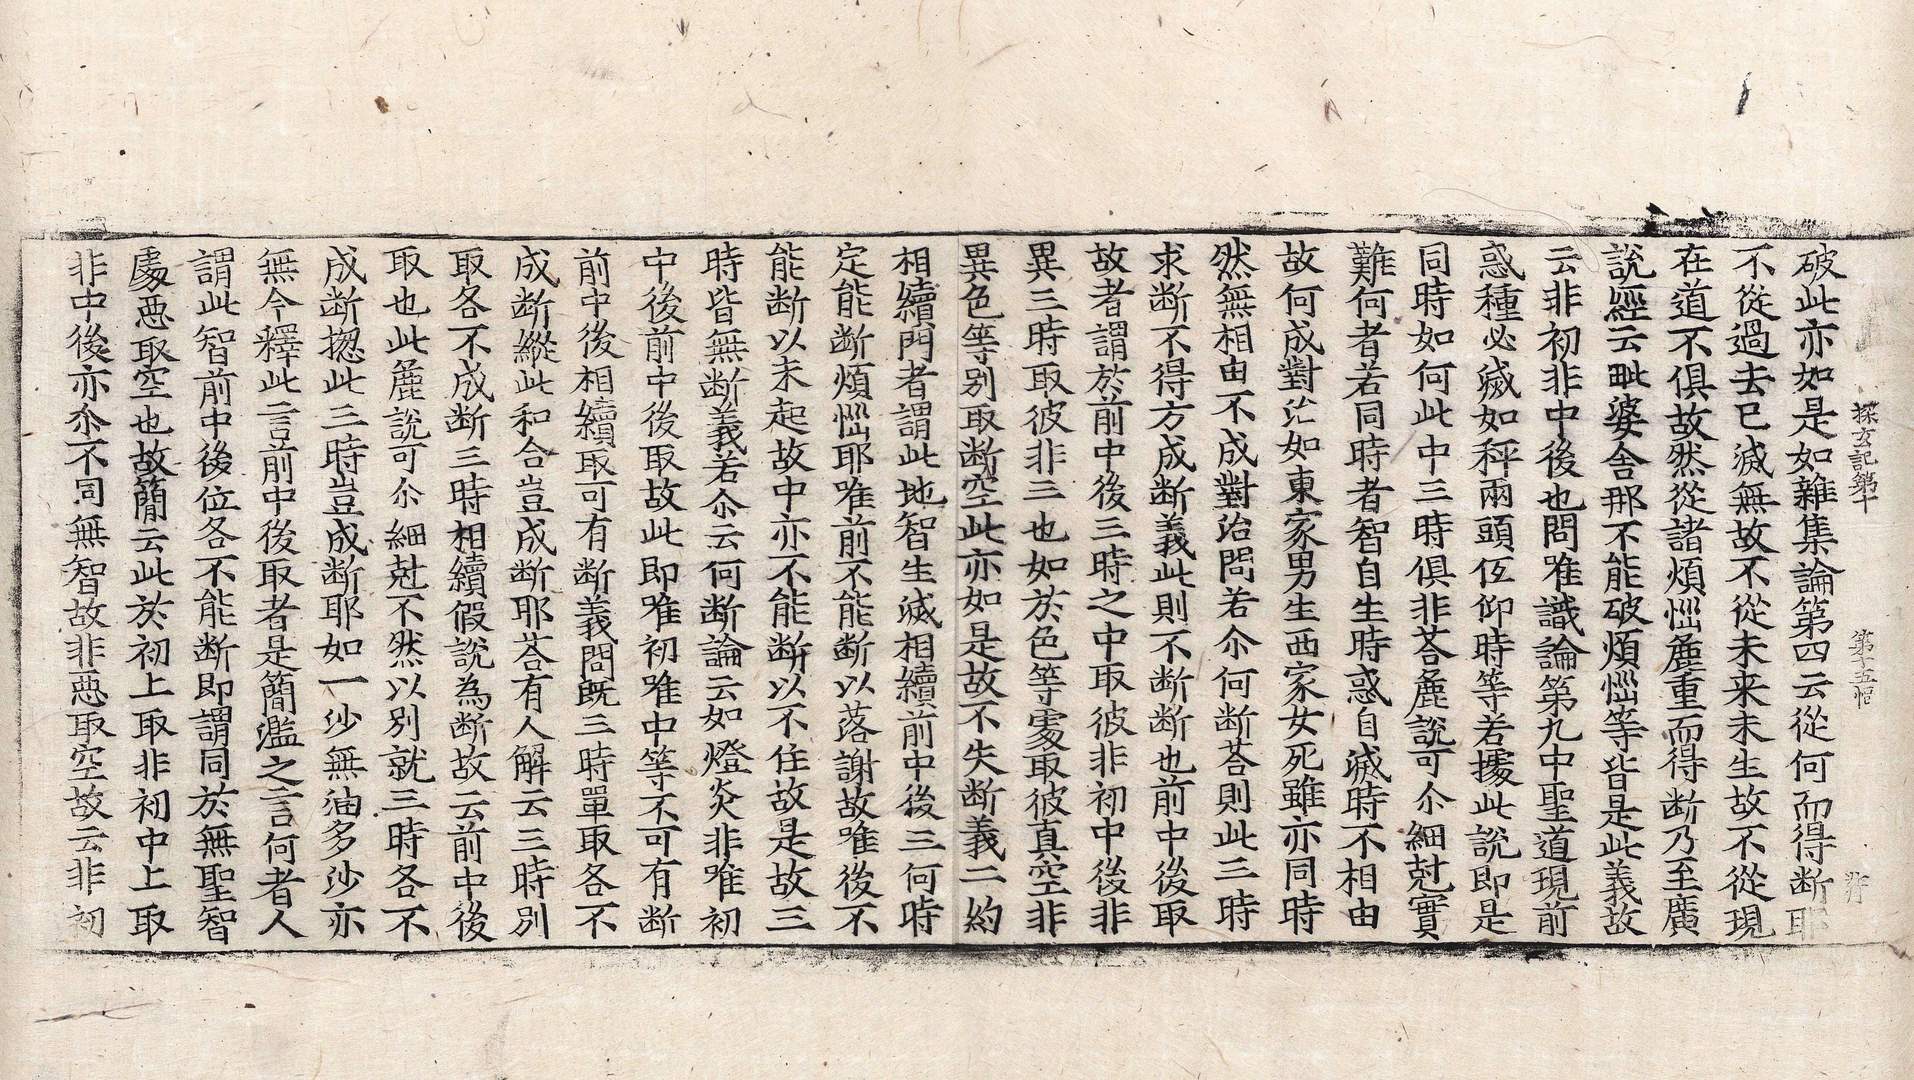 探玄記第十 第十五
破此亦如是如雜集論第四云從何而得断耶
不從過去已滅無故不從未来未生故不從現
在道不俱故然從諸煩惱麁重而得断乃至廣
說經云毗婆舎那不能破煩惱等皆是此義故
云非初非中後也問唯識論第九中聖道現前
惑種必滅如秤兩頭伭仰時等若據此說即是
同時如何此中三時俱非荅麁說可尒細尅實
難何者若同時者智自生時惑自滅時不相由
故何成對治如東家男生西家女死雖亦同時
然無相由不成對治問若尒何断荅則此三時
求断不得方成断義此則不断断也前中後取
故者謂於前中後三時之中取彼非初中後非
異三時取彼非三也如於色等處取彼真空非
異色等别取断空此亦如是故不失断義二約
相續門者謂此地智生滅相續前中後三何時
定能断煩惱耶唯前不能断以落謝故唯後不
能断以未起故中亦不能断以不住故是故三
時皆無断義若尒云何断論云如燈炎非唯初
中後前中後取故此即唯初唯中等不可有断
前中後相續取可有断義問既三時單取各不
成断縱此和合豈成断耶荅有人解云三時别
取各不成断三時相續假說為断故云前中後
取也此麁說可尒細尅不然以别就三時各不
成断揔此三時豈成断耶如一沙無油多沙亦
無今釋此言前中後取者是簡濫之言何者人
謂此智前中後位各不能断即謂同於無聖智
處惡取空也故簡云此於初上取非初中上取
非中後亦尒不同無智故非惡取空故云非初